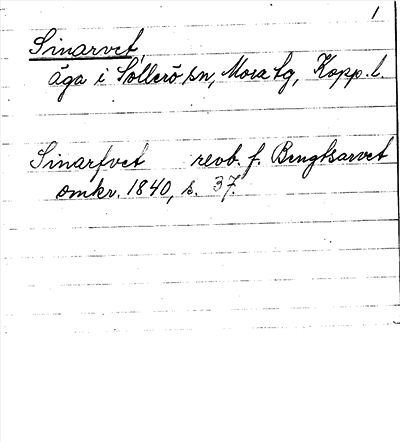 1
Sinarvet,
äga i Sollerö sn, Mora tg, Kopp. l.
Sinarfvet revb. f. Bengtsarvet
omkr. 1840, s. 37